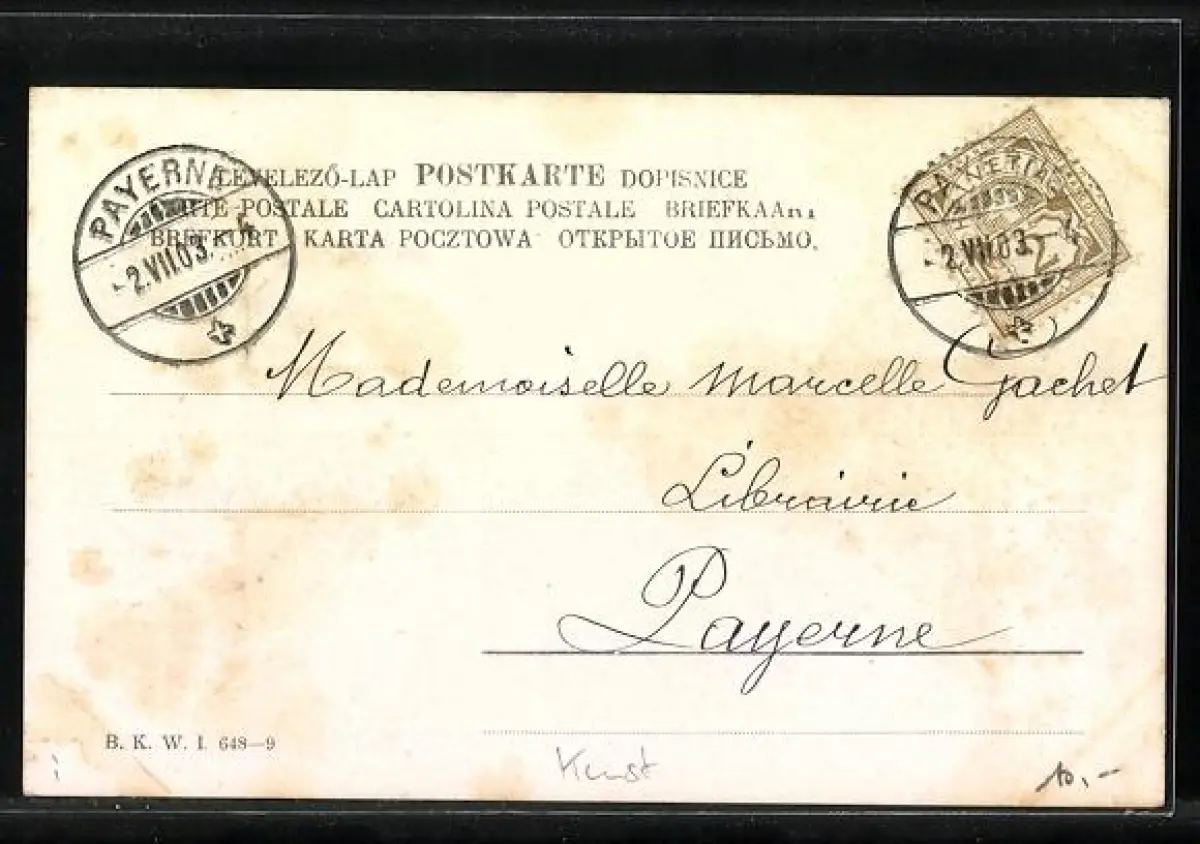 LEVELEZŐ-LAP POSTKARTE DOPISNICE
CARTE POSTALE CARTOLINA POSTALE BRIEFKAART
BREFKORT KARTA POCZTOWA ОТКРЫТОЕ ПИСЬМО.
PAYERNE
2.VII.03. 4
PAYERNE
2.VII.03. 4
Mademoiselle Marcelle Gachet
Librairie
Payerne
B. K. W. I. 648—9
Kunst
10,-